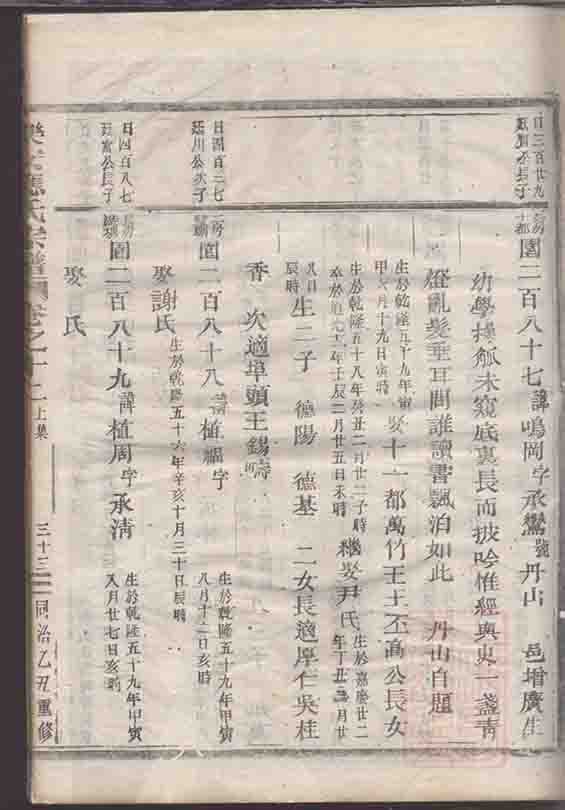 日三百廿九
長子
園二百八十七 諱鳴岡 字承鸞 號丹山 邑增廣生
幼學操觚未窺底裏長而披吟惟經與史一盞青
燈亂髮垂耳問誰讀書飄泊如此 丹山自題
生於乾隆五十九年甲寅
月十九日寅時
娶十一都萬竹王王丕高公長女
生於乾隆五十八年癸丑二月廿二子時
卒於道光十二年壬辰二月廿五日未時
繼娶尹氏
生於嘉慶廿二
年丁丑 月廿
八日
辰時
生二子 德陽 德基 二女長適厚仁吳桂
香 次適埠頭王錫
日四百三七
廷川公次子
園二百八十八 諱植 字
生於乾隆五十九年甲寅
八月十二日亥時
娶謝氏
生於乾隆五十六年辛亥十月三十日辰時
日四百八七
廷富公長子
園二百八十九 諱植周 字承清
生於乾隆五十九年甲寅
八月廿七日亥時
娶 氏
氏宗譜 卷之十二 上集 三十三 同治乙丑重修